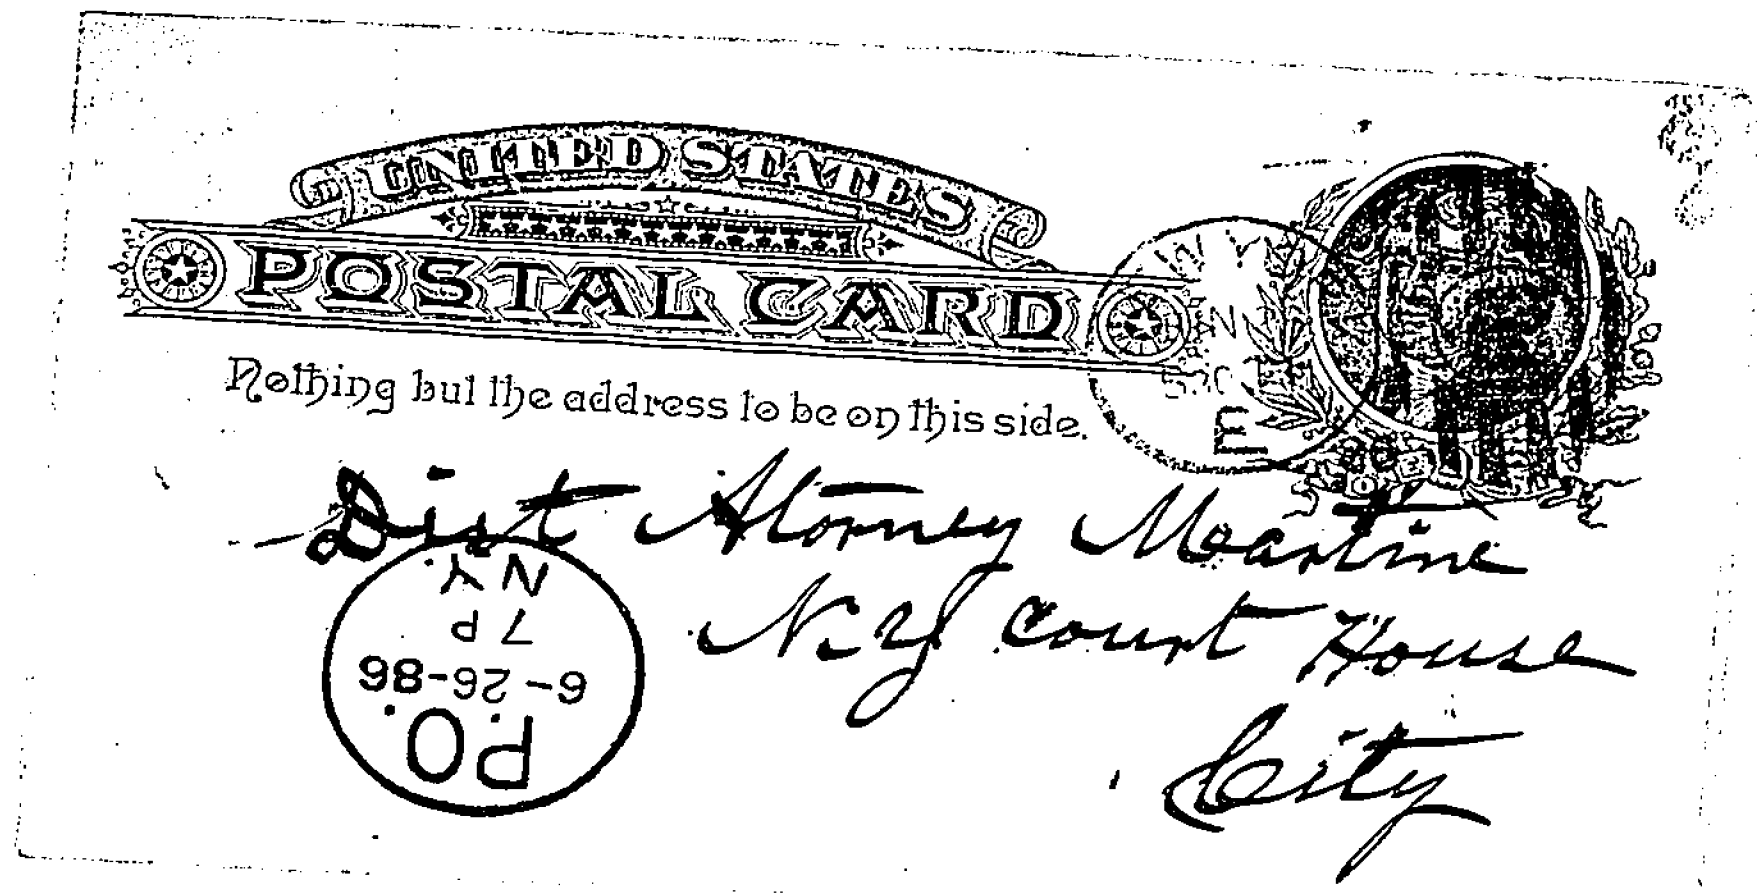 UNITED STATES
POSTAL CARD
Nothing but the address to be on this side.
Dist Attorney Martine
N.Y Court House
City
P.O.
6-26-86
7 P
N Y.
E